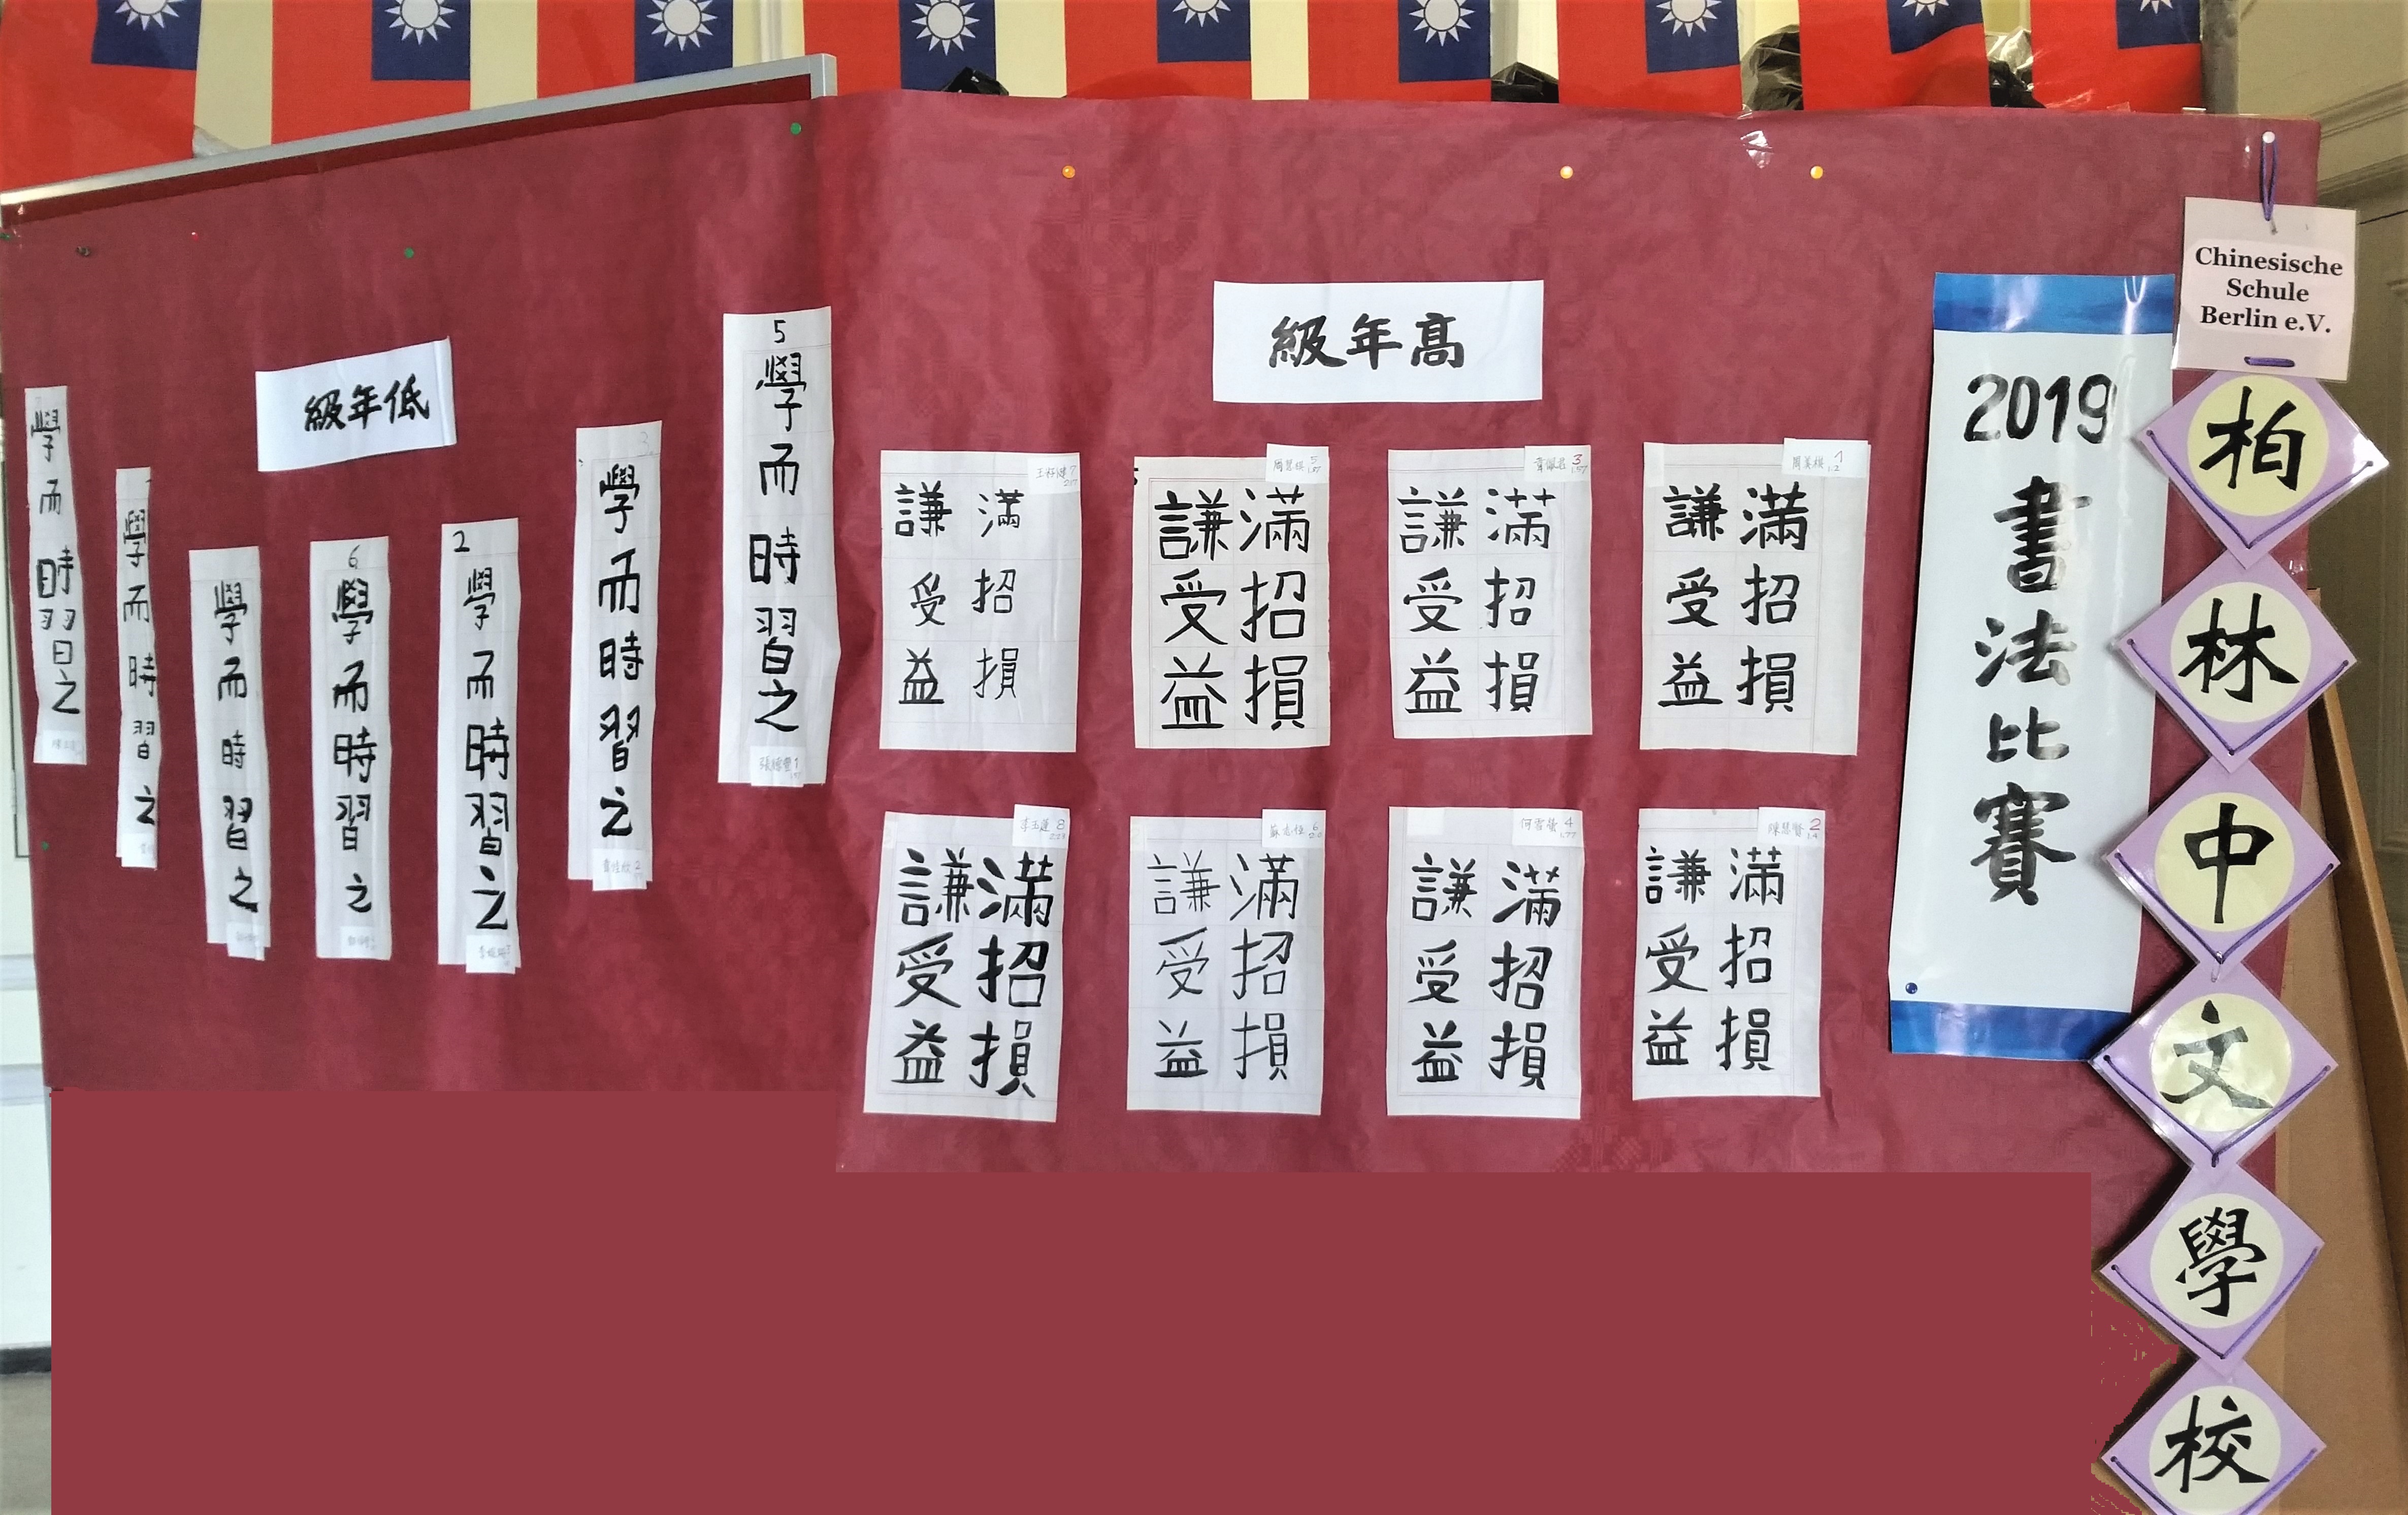 Chinesische
Schule
Berlin e.V.
柏林中文學校
2019
書法比賽
級年高
滿招損
謙受益
滿招損
謙受益
滿招損
謙受益
滿招損
謙受益
滿招損
謙受益
滿招損
謙受益
滿招損
謙受益
滿招損
謙受益
級年低
5
學而時習之
學而時習之
2
學而時習之
6
學而時習之
學而時習之
學而時習之
學而時習之